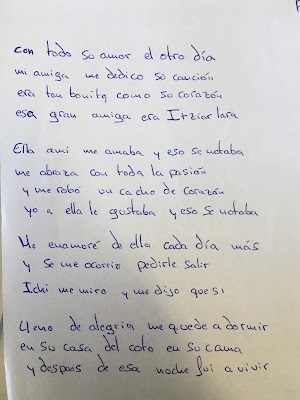 con todo so amor el otro día
mi amiga me dedico so canción
era tan bonita como so corazón
esa gran amiga era Itziar Lara
Ella ami me amaba y eso se notaba
me abraza con toda la pasión
y me robó un cacho de corazón
yo a ella le gustaba y eso se notaba
Me enamoré de ella cada día más
y se me ocorrio pedirle salir
Ichi me miro y me dijo que si
Lleno de alegria me quede a dormir
en su casa del coto en su cama
y despoes de esa noche foi a vivir